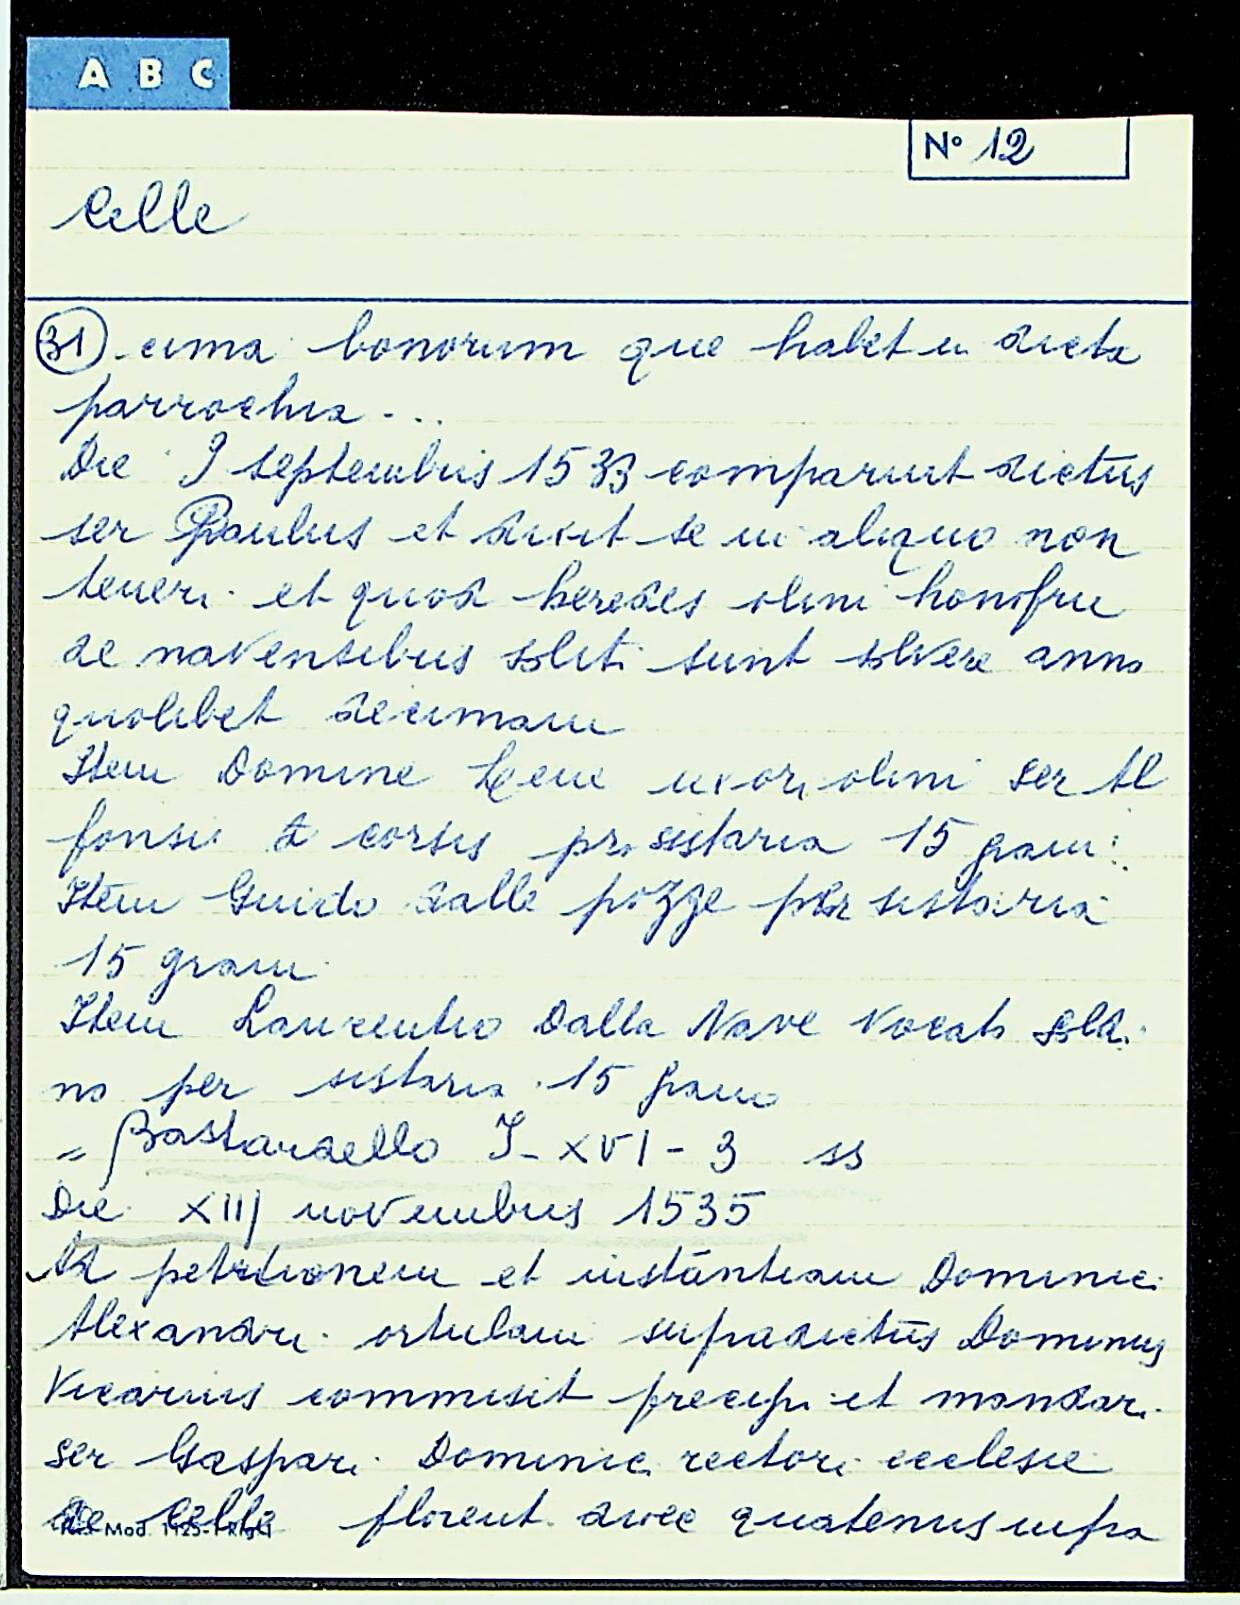 A B C
N° 12
Celle
31 cima bonorum que habet in dicta
parrochia...
Die 9 septembris 1533 comparuit dictus
ser Paulus et dixit se in aliquo non
teneri et quod heredes olim honofrii
de naventibus soliti sunt solvere anno
quolibet decimam
Item Domine Lene uxori olim ser Al
fonsii a corsis pro sistaria 15 grani
Item Guido dalle pozze per sistaria
15 grani
Item Laurentio Dalla Nave vocato
no per sistaria 15 grano
= Bastardello I-XVI-3 ss
Die XIIJ novembris 1535
Ad petitionem et instantiam Dominici
Alexandri ortulani supradictus Dominus
Vicarius commisit precipi et mandari
ser Gaspari Dominici rectori ecclesie
de Celle florent. dioec quatenus infra
Mod.